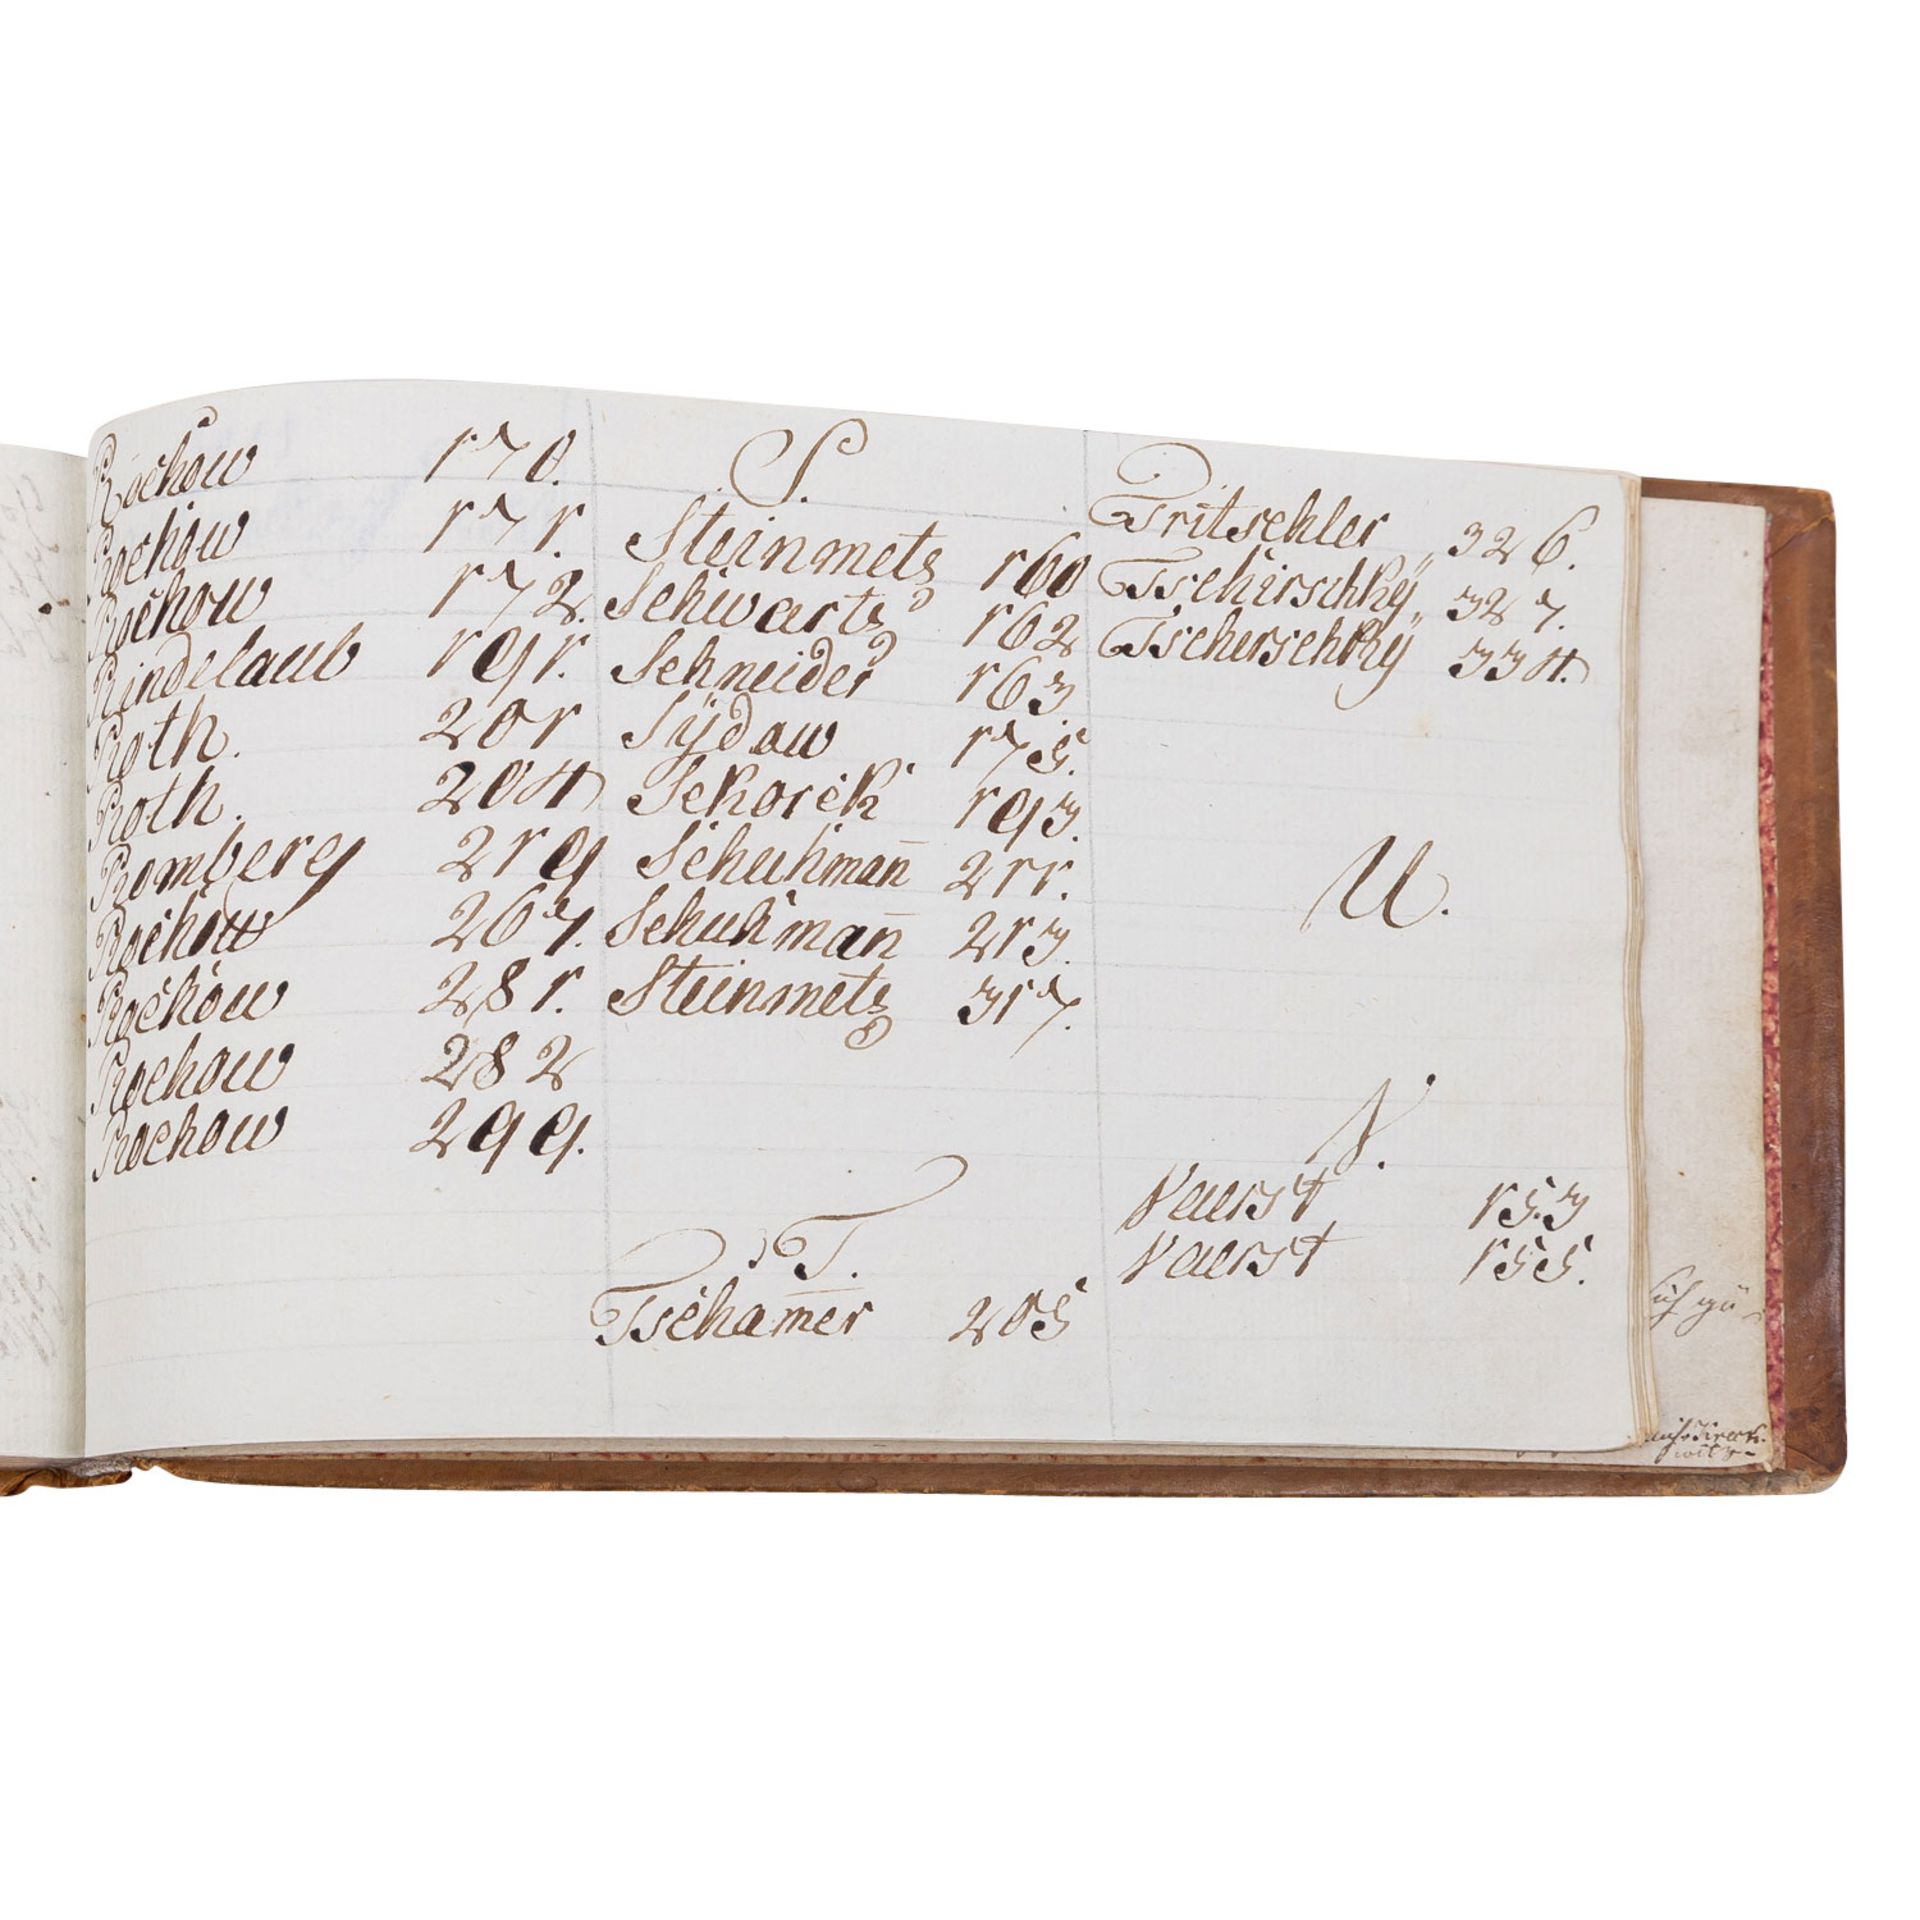 Rochow 170.
Rochow 171.
Rochow 172.
Rindelaub 191.
Roth. 201
Roth. 204
Romberg 219
Rochow 267.
Rochow 281.
Rochow 282
Rochow 299.
S.
Steinmets 160
Schwarts 162
Schneider 163
Sÿdow 175.
Sekorck 193.
Schuhman̄ 211.
Schuhman̄ 213.
Steinmets 317.
T.
Tscham̄er 205
Tritschler 326.
Tschirschkÿ 327.
Tscherschkÿ 334.
U.
V.
Vaerst 153
Vaerst 155.